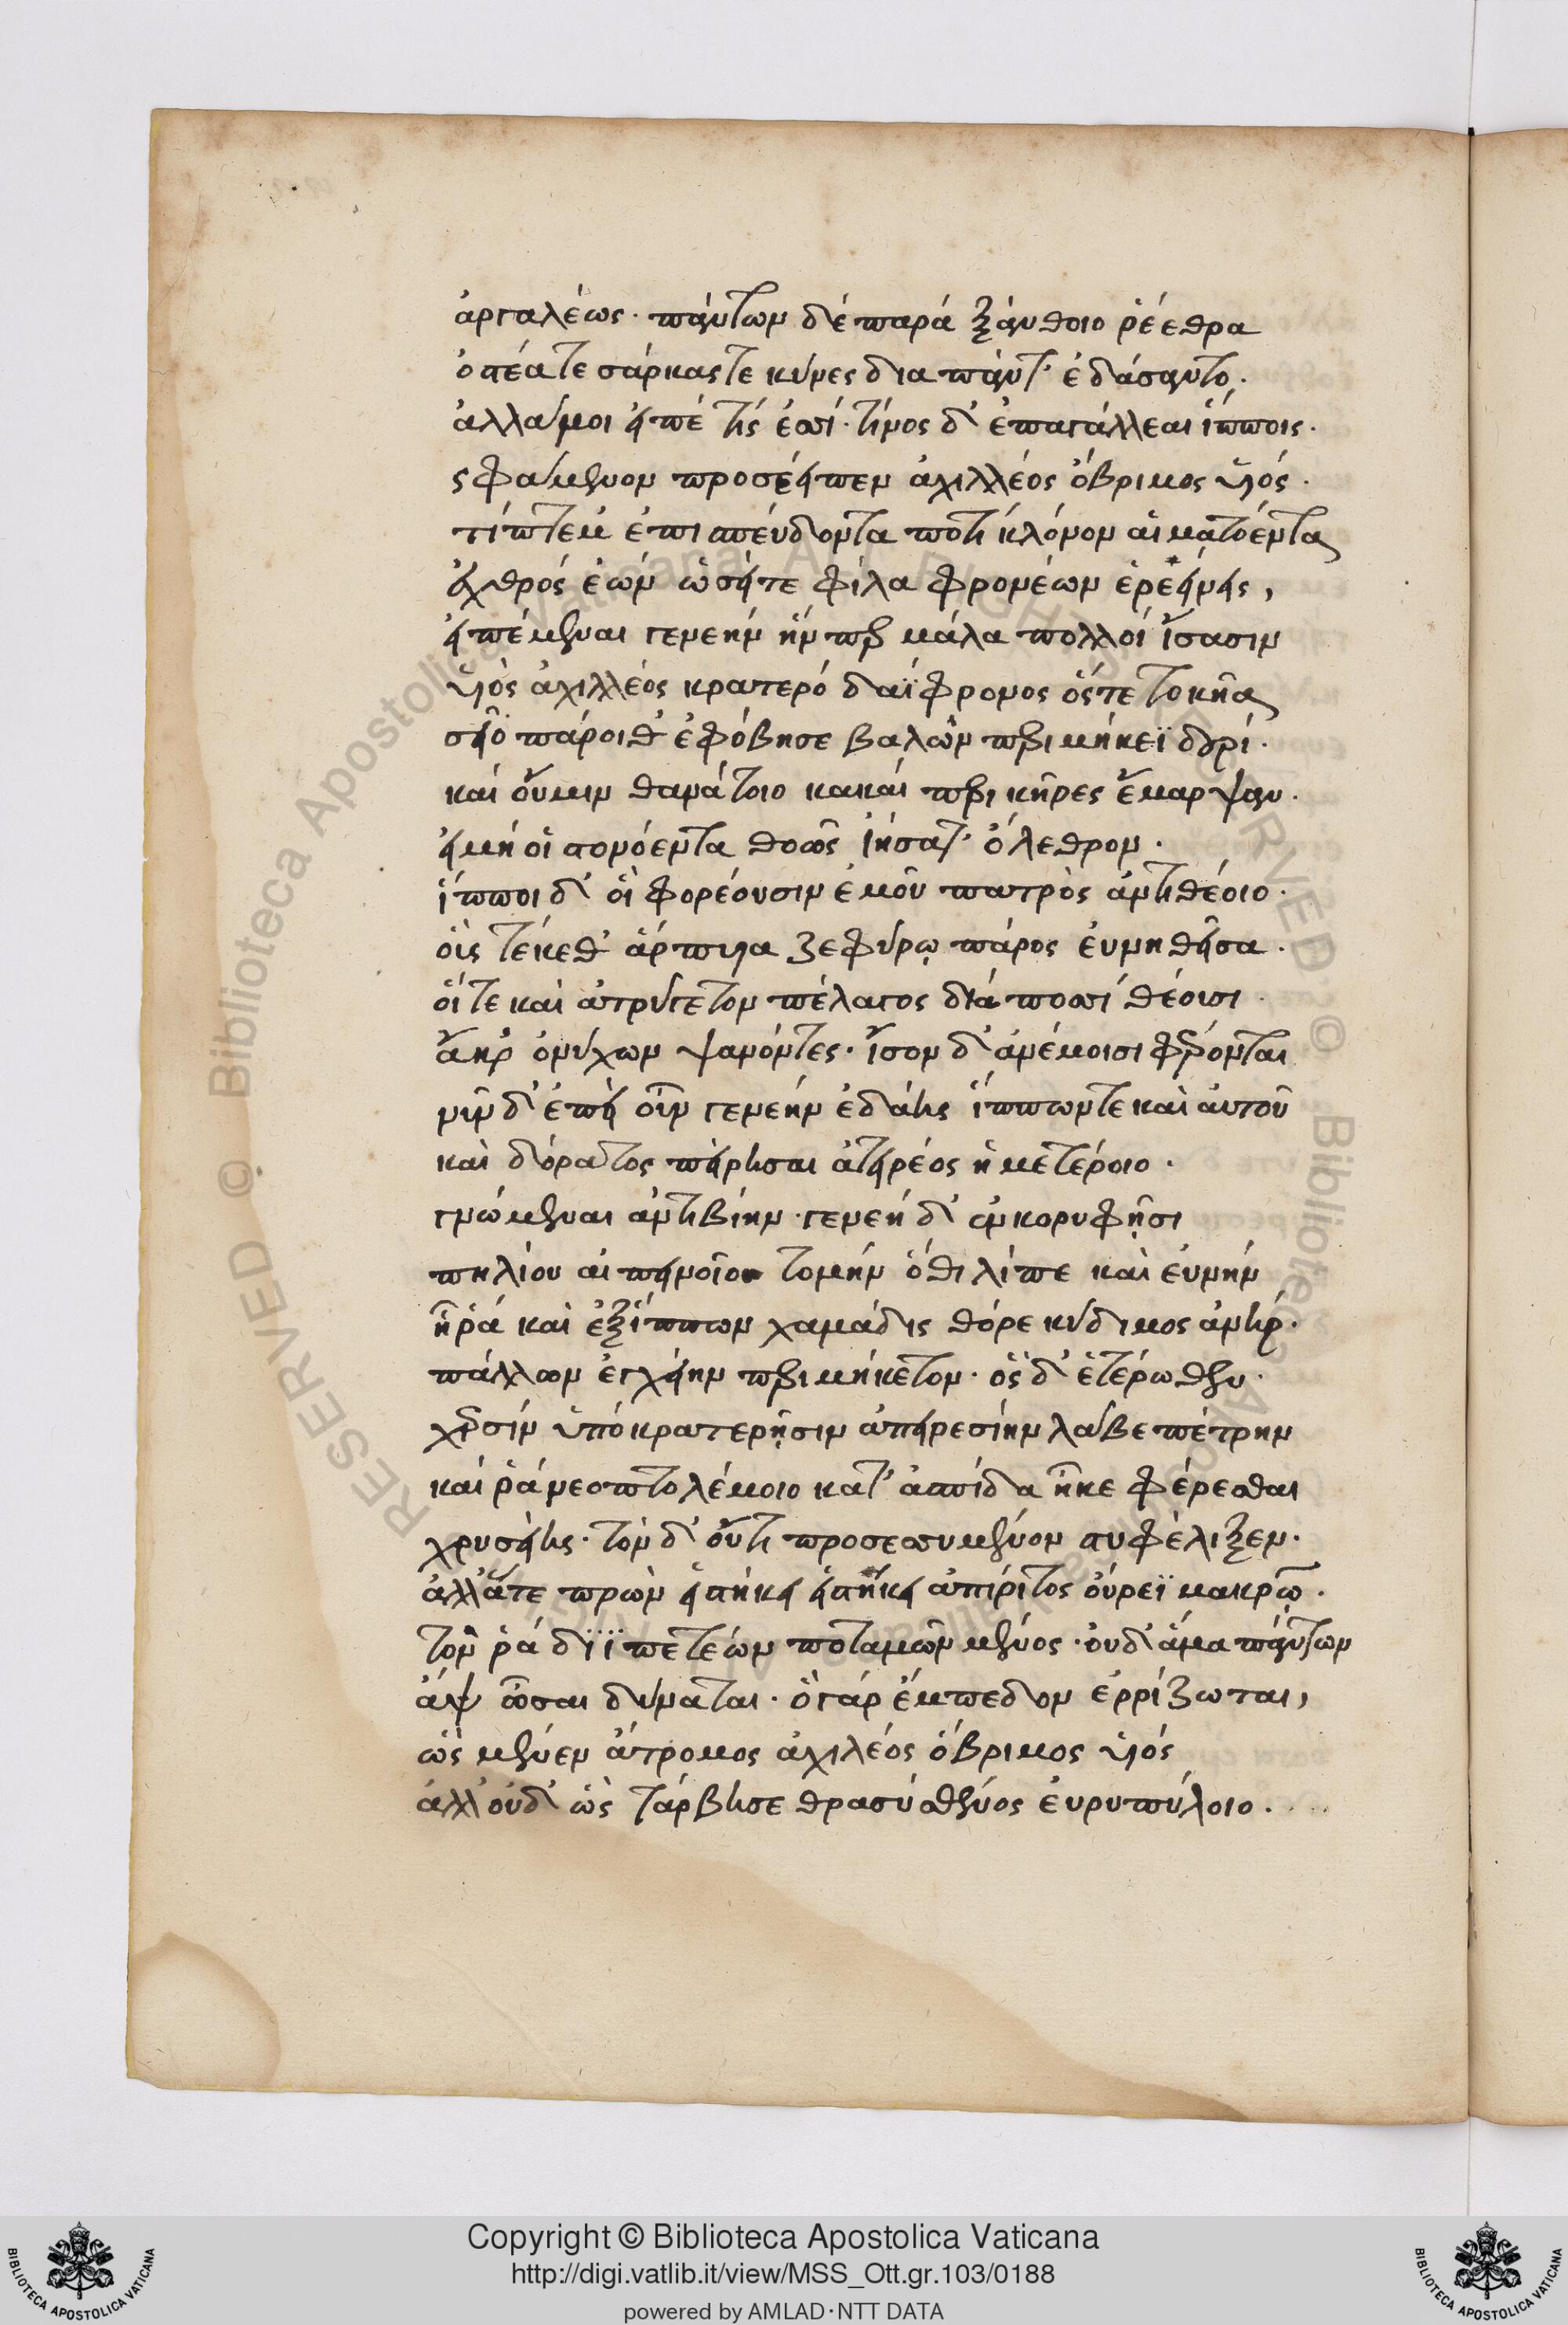 ἀργαλέως· πάντων δὲ παρὰ ξάνθοιο ῥέεθρα
ὀστέα τε σάρκας τε κύνες δια πάντ' ἐδάσαντο.
ἀλλά μοι εἰπέ τίς ἐσσί· τίνος δ' ἐπαγάλλεαι ἵπποις.
ς φάμενον προσέειπεν ἀχιλλέος ὄβριμος υἱός.
τίπτε μ' ἐπισπεύδοντα ποτὶ κλόνον αἱματόεντα
ἐχθρός ἐών ὡσεί τε φίλα φρονέων ἐρεείνεις,
εἰπέμεναι γενεήν ἥν περ μάλα πολλοί ἴσασιν
υἱὸς ἀχιλλέος κρατερό δαΐφρονος ὅς τε τοκῆα
σεῖο πάροιθ' ἐφόβησε βαλών περιμήκεϊ δουρί.
καί οὔ μιν θανάτοιο κακαί περι κῆρες ἔμαρψαν.
εἰ μή οἱ στονόεντα θοῶς ἰήσατ' ὄλεθρον.
ἵπποι δ' οἳ φορέουσιν ἐμοῦ πατρὸς ἀντιθέοιο.
οἷς τέκεθ' ἅρπυια ζεφύρῳ πάρος εὐνηθεῖσα.
οἵ τε καὶ ἀτρύγετον πέλαγος διά ποσσί θέουσι
ἄκρ' ὀνύχων ψανόντες· ἶσον δ' ἀνέμοισι φέρονται
νῦν δ' ἐπεὶ οὖν γενεήν ἐδάης ἵππων τε καὶ αὐτοῦ
καὶ δόρατος πείρησαι ἀτειρέος ἡμετέροιο.
γνώμεναι ἀντιβίην· γενεή δ' ἐν κορυφῇσι
πηλίου αἰπεινοῖο τομήν ὅθι λίπε καὶ εὐνήν
ἦ ῥά καὶ ἐξ ἵππων χαμάδις θόρε κύδιμος ἀνήρ.
πάλλων ἐγχείην περιμήκετον. ὃς δ' ἑτέρωθεν.
χερσίν ὑπό κρατερῇσιν ἀπειρεσίην λάβε πέτρην
καί ῥά νεοπτολέμοιο κατ' ἀσπίδα ἧκε φέρεσθαι
χρυσείης. τὸν δ' οὔτι προσεσσυμένον στυφέλιξεν.
ἀλλ' ἅτε πρών εἱστήκει εἱστήκει ἀπίριτος οὔρεϊ μακρῷ.
τόν ῥά διϊπετέων ποταμῶν μένος. οὐδ' ἅμα πάντων
ἂψ ὦσαι δύναται. ὁ γάρ ἔμπεδον ἐρρίζωται,
ὣς μένεν ἄτρομος ἀχιλέος ὄβριμος υἱός
ἀλλ' οὐδ' ὣς τάρβησε θρασύ σθένος εὐρυπύλοιο.
Copyright © Biblioteca Apostolica Vaticana
http://digi.vatlib.it/view/MSS_Ott.gr.103/0188
powered by AMLAD·NTT DATA